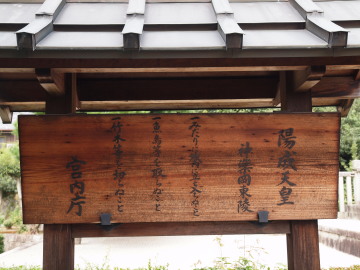 陽成天皇
神楽岡東陵
一、みだりに域内に立ち入らぬこと
一、魚鳥等を取らぬこと
一、竹木等を切らぬこと
宮内庁